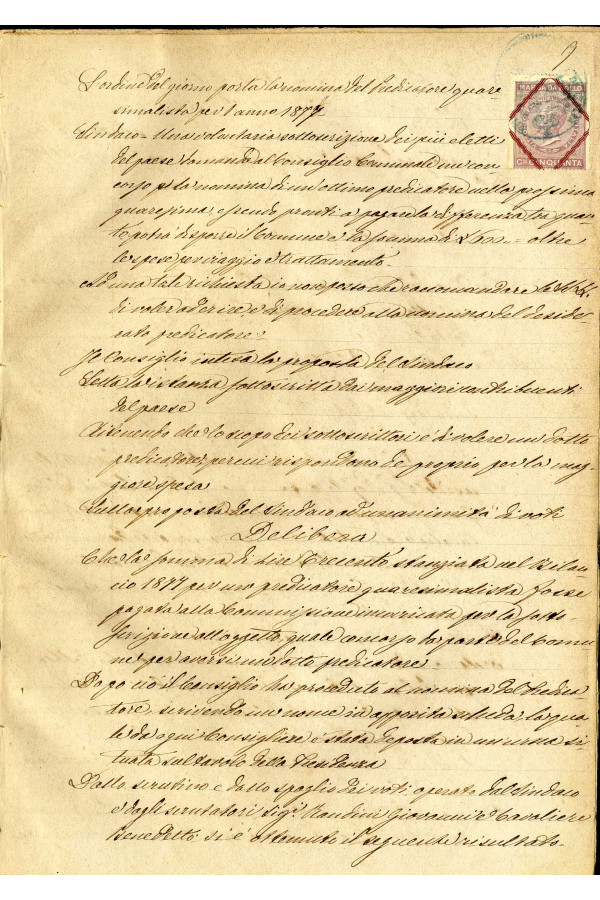 2
MARCA DA BOLLO
CMI CINQUANTA
L'ordine del giorno porta la nomina del Predicatore quare
simalista per l'anno 1877
Sindaco = Una volontaria sottoscrizione dei più eletti
del paese domanda al Consiglio Comunale un con
corso per la nomina di un'ottimo predicatore nella prossima
quaresima, essendo pronti a pagare la differenza tra quan
to potrà disporre il Comune e la somma di = oltre
le spese per viaggio e trattamento.
Ad una tale richiesta io non posso che raccomandare
di voler aderire e di procedere alla nomina del deside
rato predicatore.
Il Consiglio intesa la proposta del Sindaco
Letta la istanza sottoscritta dai maggiori contribuenti
del paese
Ritenendo che lo scopo dei sottoscrittori è di volere un dotto
predicatore, per cui rispondono de proprio per la mag
giore spesa
Sulla proposta del Sindaco ad unanimità di voti
Delibera
Che la somma di Lire Trecento stanziata nel Bilan
cio 1877 per un predicatore quaresimalista fosse
pagata alla Commissione incaricata per la sotto
scrizione all'oggetto, quale concorso la parte del Comu
ne per aversi un dotto predicatore
Dopo ciò il Consiglio ha proceduto al nomina del Predica
tore, scrivendo un nome in apposita scheda, la qua
le da ogni Consigliere è stata deposta in un'urna si
tuata sul tavolo della Presidenza
Dallo scrutinio e dallo spoglio dei voti operato dal Sindaco
e dagli scrutatori Sigi Giovanni e Cavaliere
Benedetto si è ottenuto il seguente risultato.